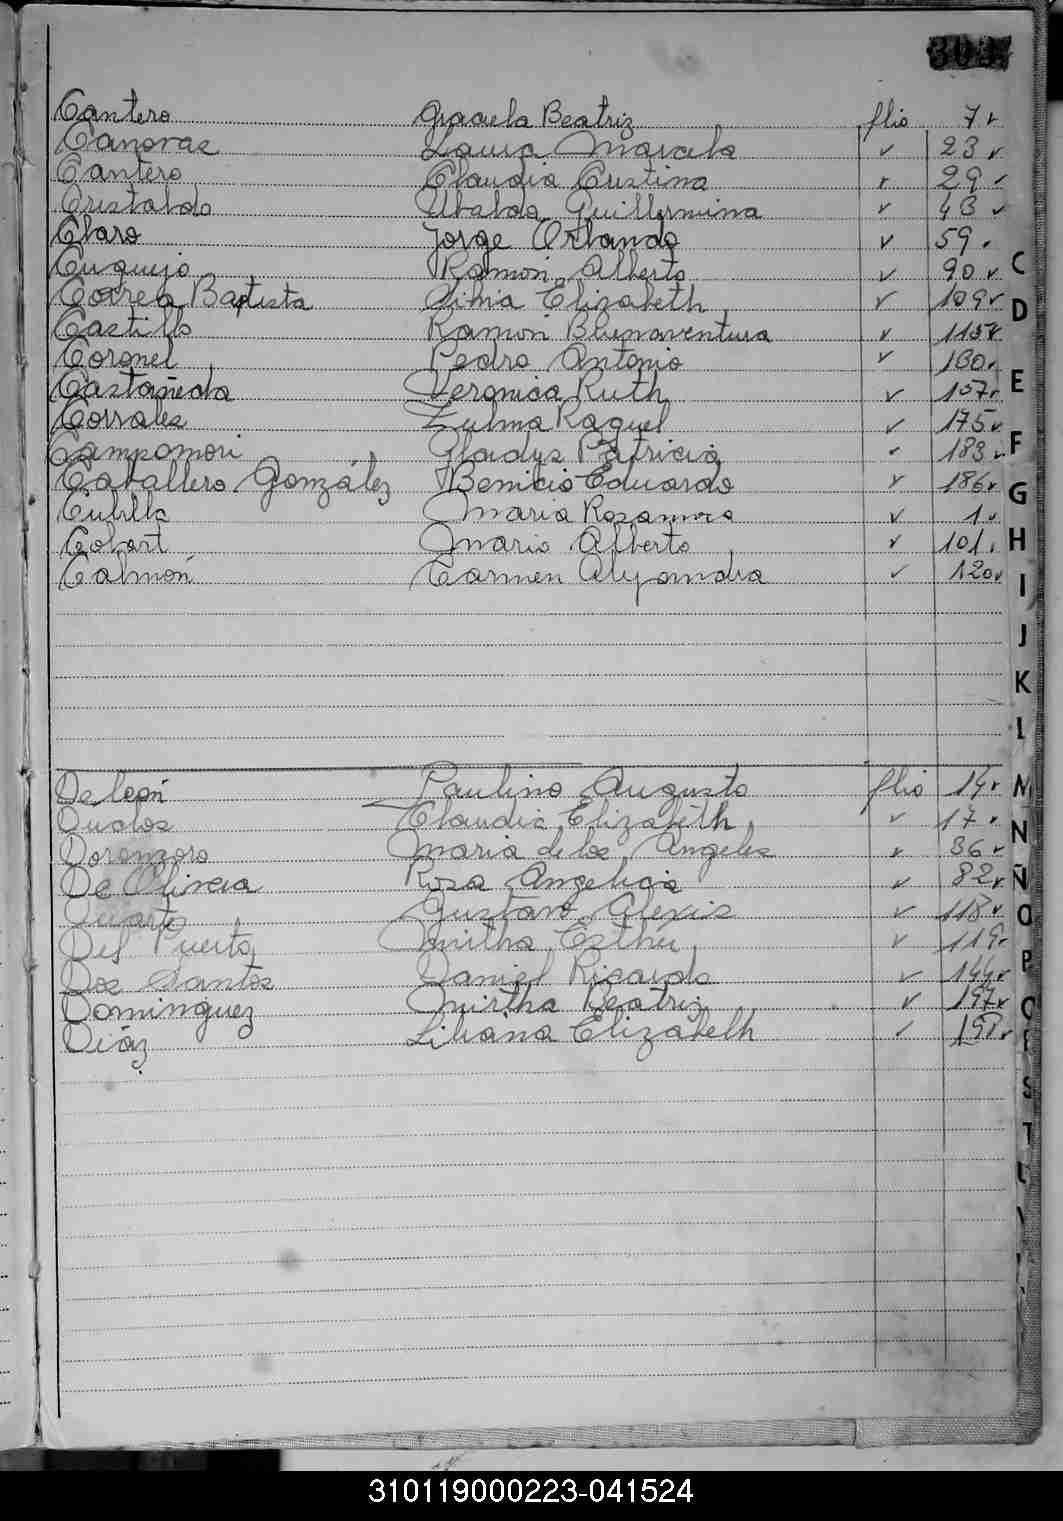 303
Cantero Graciela Beatriz flio 7 v
Canovas Laura Marcela v 23 v
Cantero Claudia Cristina v 29 v
Cristaldo Ubalda Guillermina v 43 v
Claro Jorge Orlando v 59.
Cuquejo Ramón Alberto v 90 v
Correa Baptista Silvia Elizabeth v 109 v
Castillo Ramón Buenaventura v 115 v
Coronel Pedro Antonio v 130.
Castañeda Veronica Ruth v 157 v
Corrales Zulma Raquel v 175 v
Campomori Gladys Patricia v 183 v
Caballero González Benicio Eduardo v 186 v
Cubilla Maria Rosa v 1 v
Cobart Mario Alberto v 101.
Calmón Carmen Alejandra v 120 v
De león Paulino Augusto flio 14 v
Duclos Claudia Elizabeth v 17 v
Doronzoro Maria de los Angeles v 36 v
De Oliveira Rosa Angelica v 82 v
Duarte Gustavo Alexis v 118 v
Del Puerto Mirtha Esther v 119.
Dos Santos Daniel Ricardo v 144 v
Dominguez Mirtha Beatriz v 197 v
Diáz Liliana Elizabeth v 198 v
C
D
E
F
G
H
I
J
K
L
M
N
Ñ
O
P
S
T
310119000223-041524